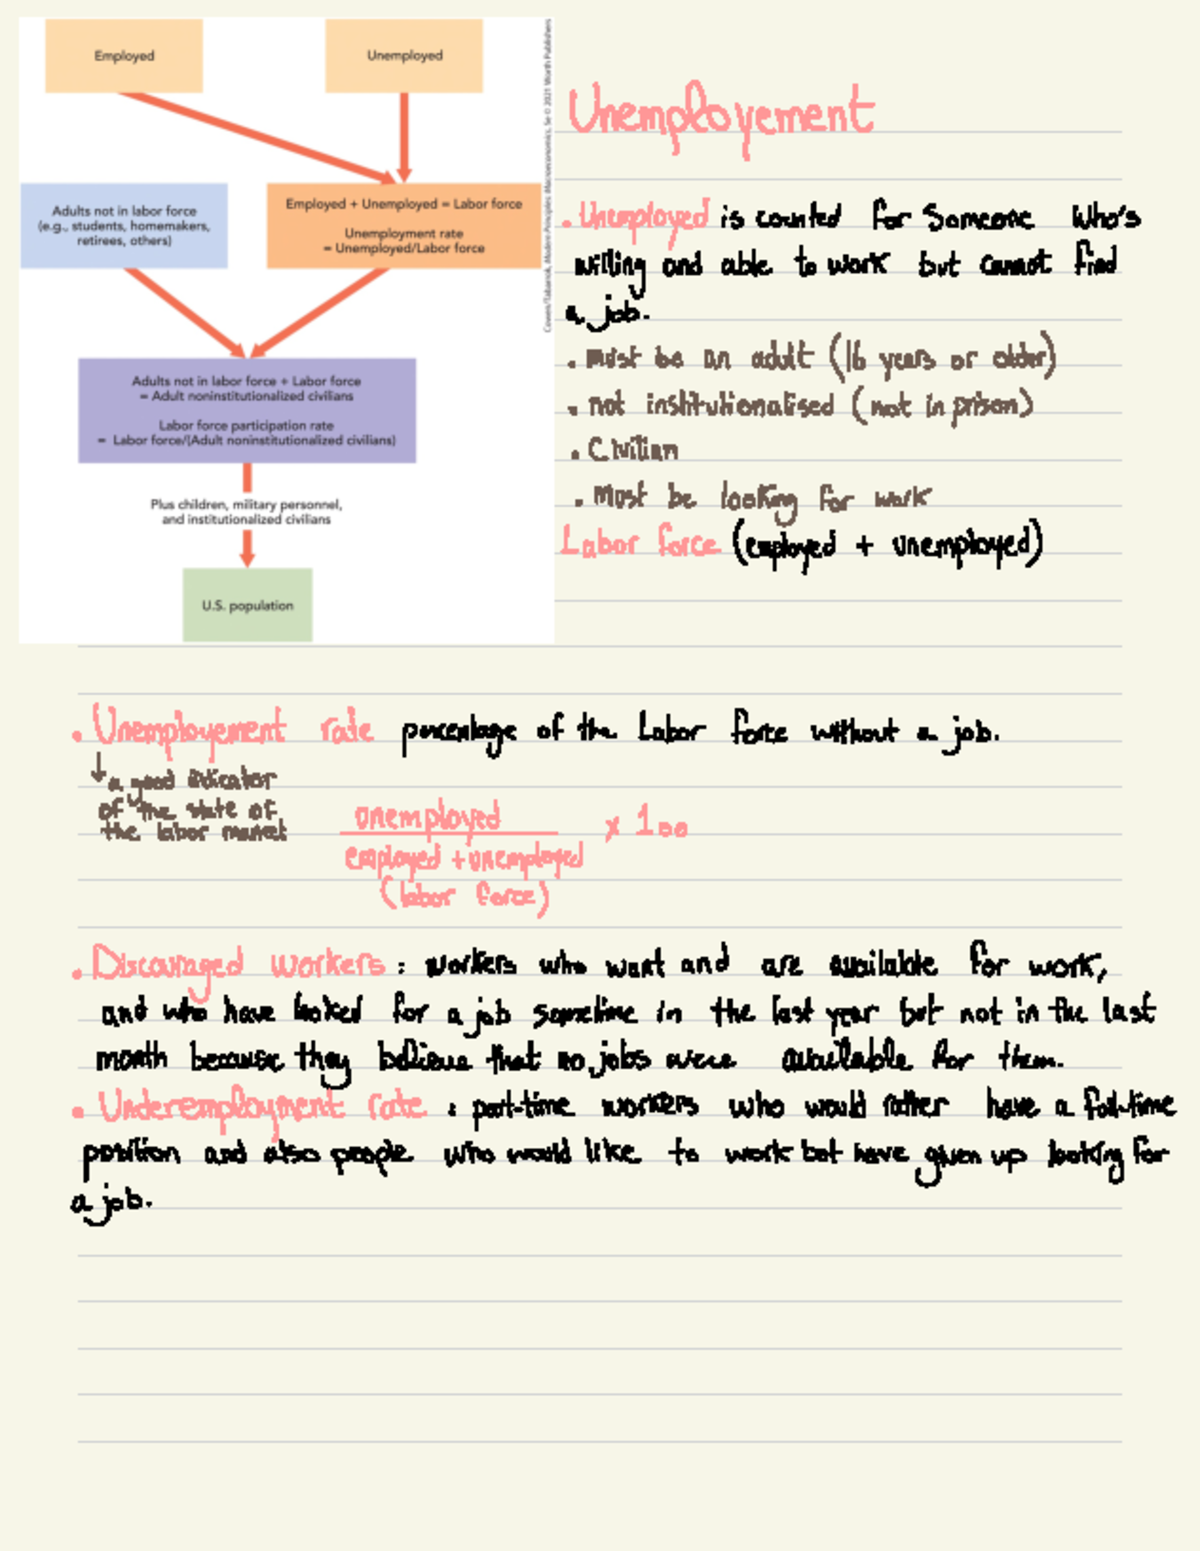 Employed
Unemployed
Adults not in labor force
(e.g., students, homemakers,
retirees, others)
Employed + Unemployed = Labor force
Unemployment rate
= Unemployed/Labor force
Adults not in labor force + Labor force
= Adult noninstitutionalized civilians
Labor force participation rate
= Labor force/(Adult noninstitutionalized civilians)
Plus children, military personnel,
and institutionalized civilians
U.S. population
Cowen/Tabarrok, Modern Principles: Macroeconomics, 5e © 2021 Worth Publishers
Unemployement
• Unemployed is counted for someone who's
willing and able to work but cannot find
a job.
• must be an adult (16 years or older)
• not institutionalised (not in prison)
• Civilian
• must be looking for work
Labor force (employed + unemployed)
• Unemployement rate percentage of the Labor force without a job.
↓ a good indicator
of the state of
the labor market
unemployed
x 100
employed + unemployed
(labor force)
• Discouraged workers : workers who want and are available for work,
and who have looked for a job sometime in the last year but not in the last
month because they believe that no jobs were available for them.
• Underemployment rate : part-time workers who would rather have a full-time
position and also people who would like to work but have given up looking for
a job.